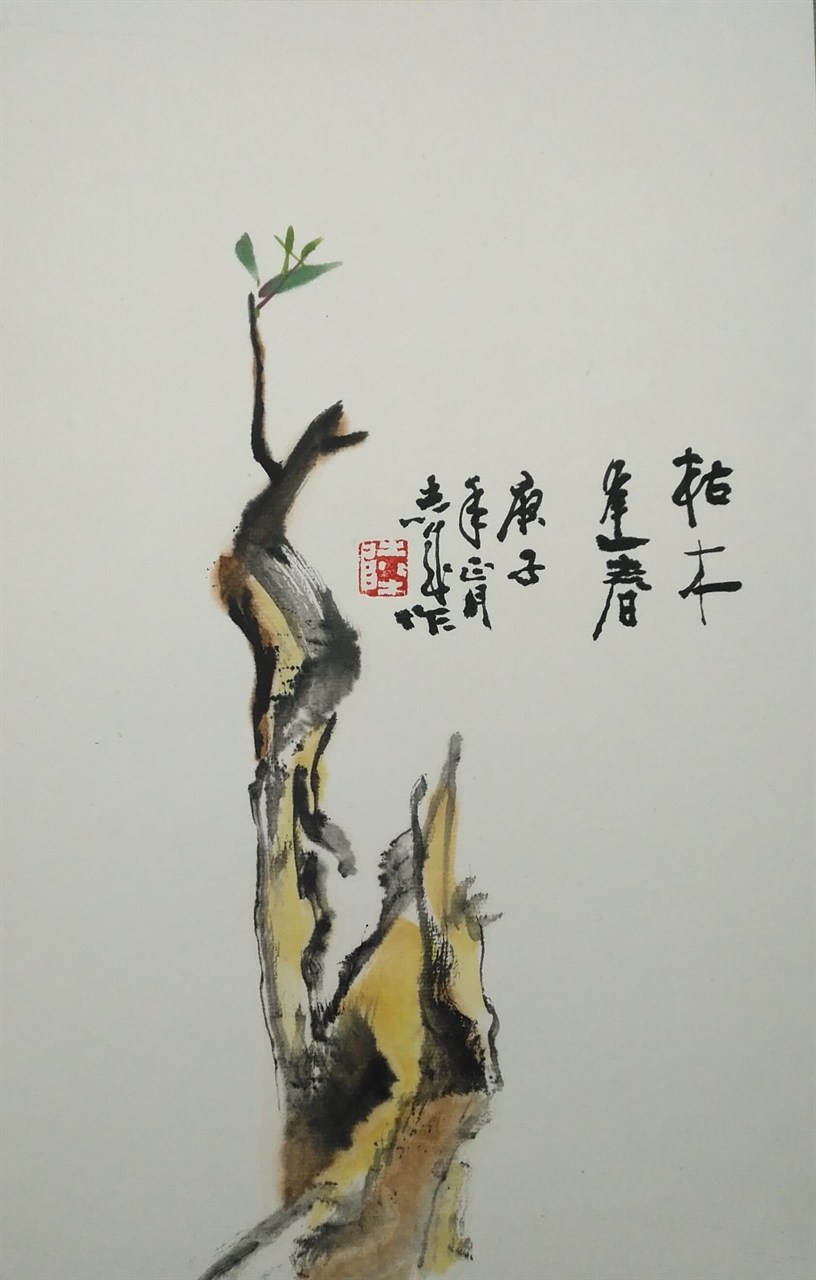 枯木
逢春
庚子
年正月
志华作